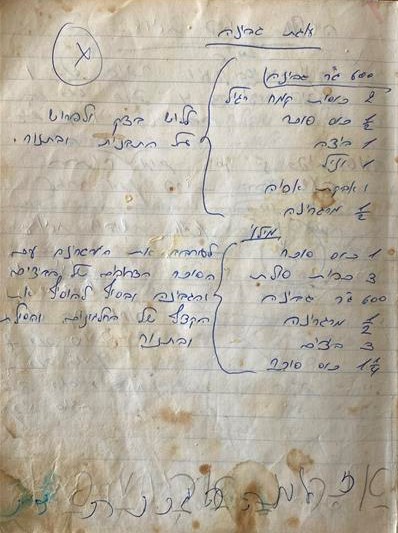 עוגת גבינה
X
600 גר' גבינה
2 כוסות קמח רגיל
1/2 כוס סוכר
1 ביצה
1 וניל
1 אבקת אפיה
1/2 מרגרינה
ללוש בצק ולפרוש
על התבנית ובתנור.
מילוי
1 כוס סוכר
3 כפית סולת
600 גר' גבינה
1/2 מרגרינה
3 ביצים
1 1/4 כוס סוכר
לערבב את המרגרינה עם
הסוכר החלמונים של הביצים
והגבינה ובסוף להוסיף את
הקצף של החלבונים והסולת
ובתנור